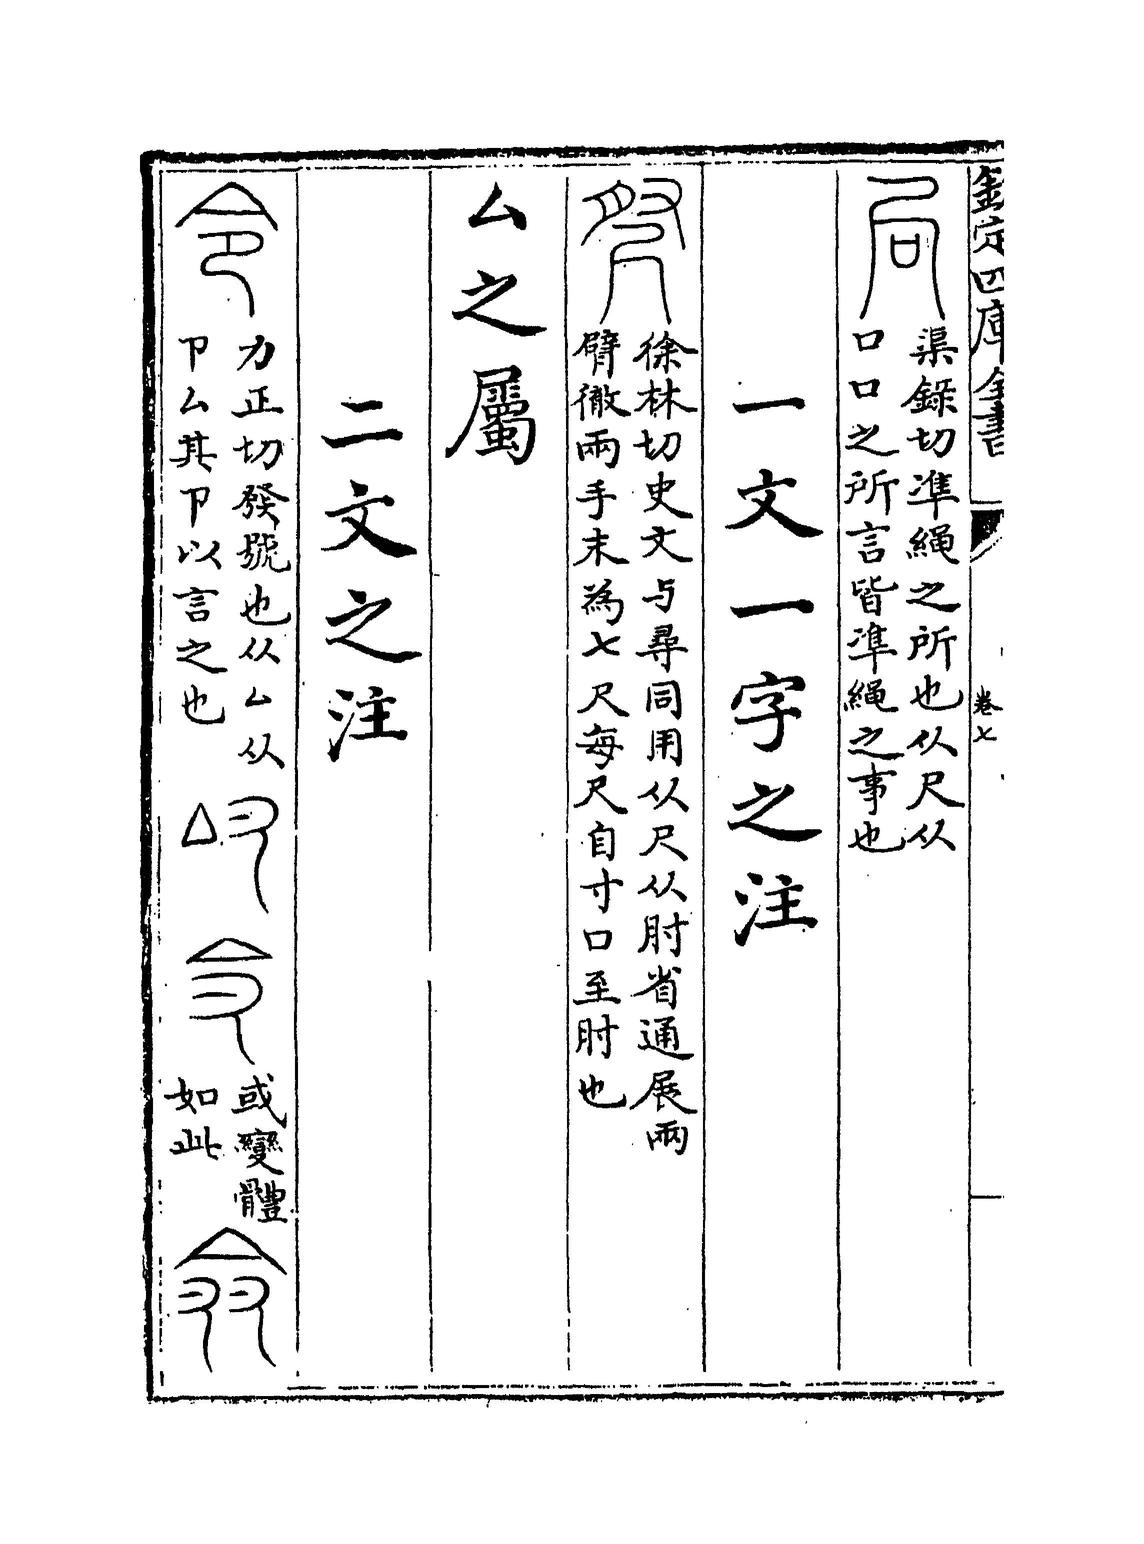 欽定四庫全書
卷七
局
渠錄切準繩之所也从尺从
口口之所言皆準繩之事也
一文一字之注
徐林切史文与尋同用从尺从肘省通展兩
臂徹兩手末為七尺每尺自寸口至肘也
亼之屬
二文之注
令
力正切發號也从亼从
卩亼其卩以言之也
或變體
如此